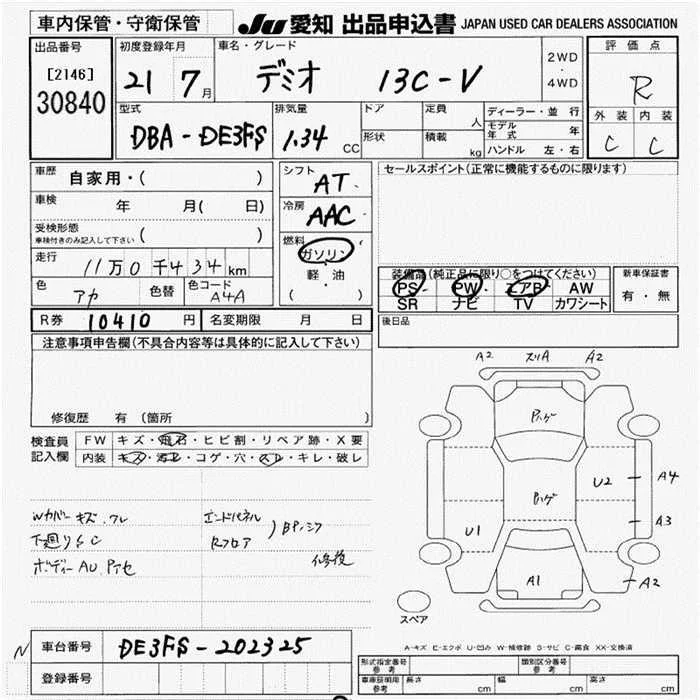 車内保管・守衛保管 JU 愛知 出品申込書 JAPAN USED CAR DEALERS ASSOCIATION
出品番号 初度登録年月 車名・グレード 2WD・4WD 評価点
[2146] 21 7月 デミオ 13C-V R
30840
型式 排気量 ドア 定員 人 ディーラー・並行 外装 内装
DBA-DE3FS 1.34 CC 形状 積載 kg モデル年式 年 C C
ハンドル 左・右
車歴 自家用・( ) シフト AT セールスポイント(正常に機能するものに限ります)
車検 年 月( 日) 冷房 AAC
受検形態 ( )
車検付きのみ記入して下さい
燃料 ガソリン・軽油 ( )
走行 11万0千434km
装備品(純正品に限り○をつけてください) 新車保証書
色 アカ 色替 色コード A4A
PS PW エアB AW 有・無
SR ナビ TV カワシート
R券 10410 円 名変期限 月 日 後日品
注意事項申告欄(不具合内容等は具体的に記入して下さい)
A2 スリA A2
修復歴 有(箇所 )
検査員記入欄 FW キズ・飛石・ヒビ割・リペア跡・X要
内装 キズ・汚レ・コゲ・穴・スレ・キレ・破レ
Pハゲ
Pハゲ
U2 A4
A3
U1
A1 A2
Wカバーキズ.ワレ エンドパネル
下廻りSC Rフロア )BPシワ
ボディーAU. 修後
スペア
A-キズ E-エクボ U-凹み W-補修跡 S-サビ C-腐食 XX-交換済
N 車台番号 DE3FS-202325
登録番号
形式指定番号 参考 類別区分番号 参考
車庫証明用 参考 長さ cm 幅 cm 高さ cm